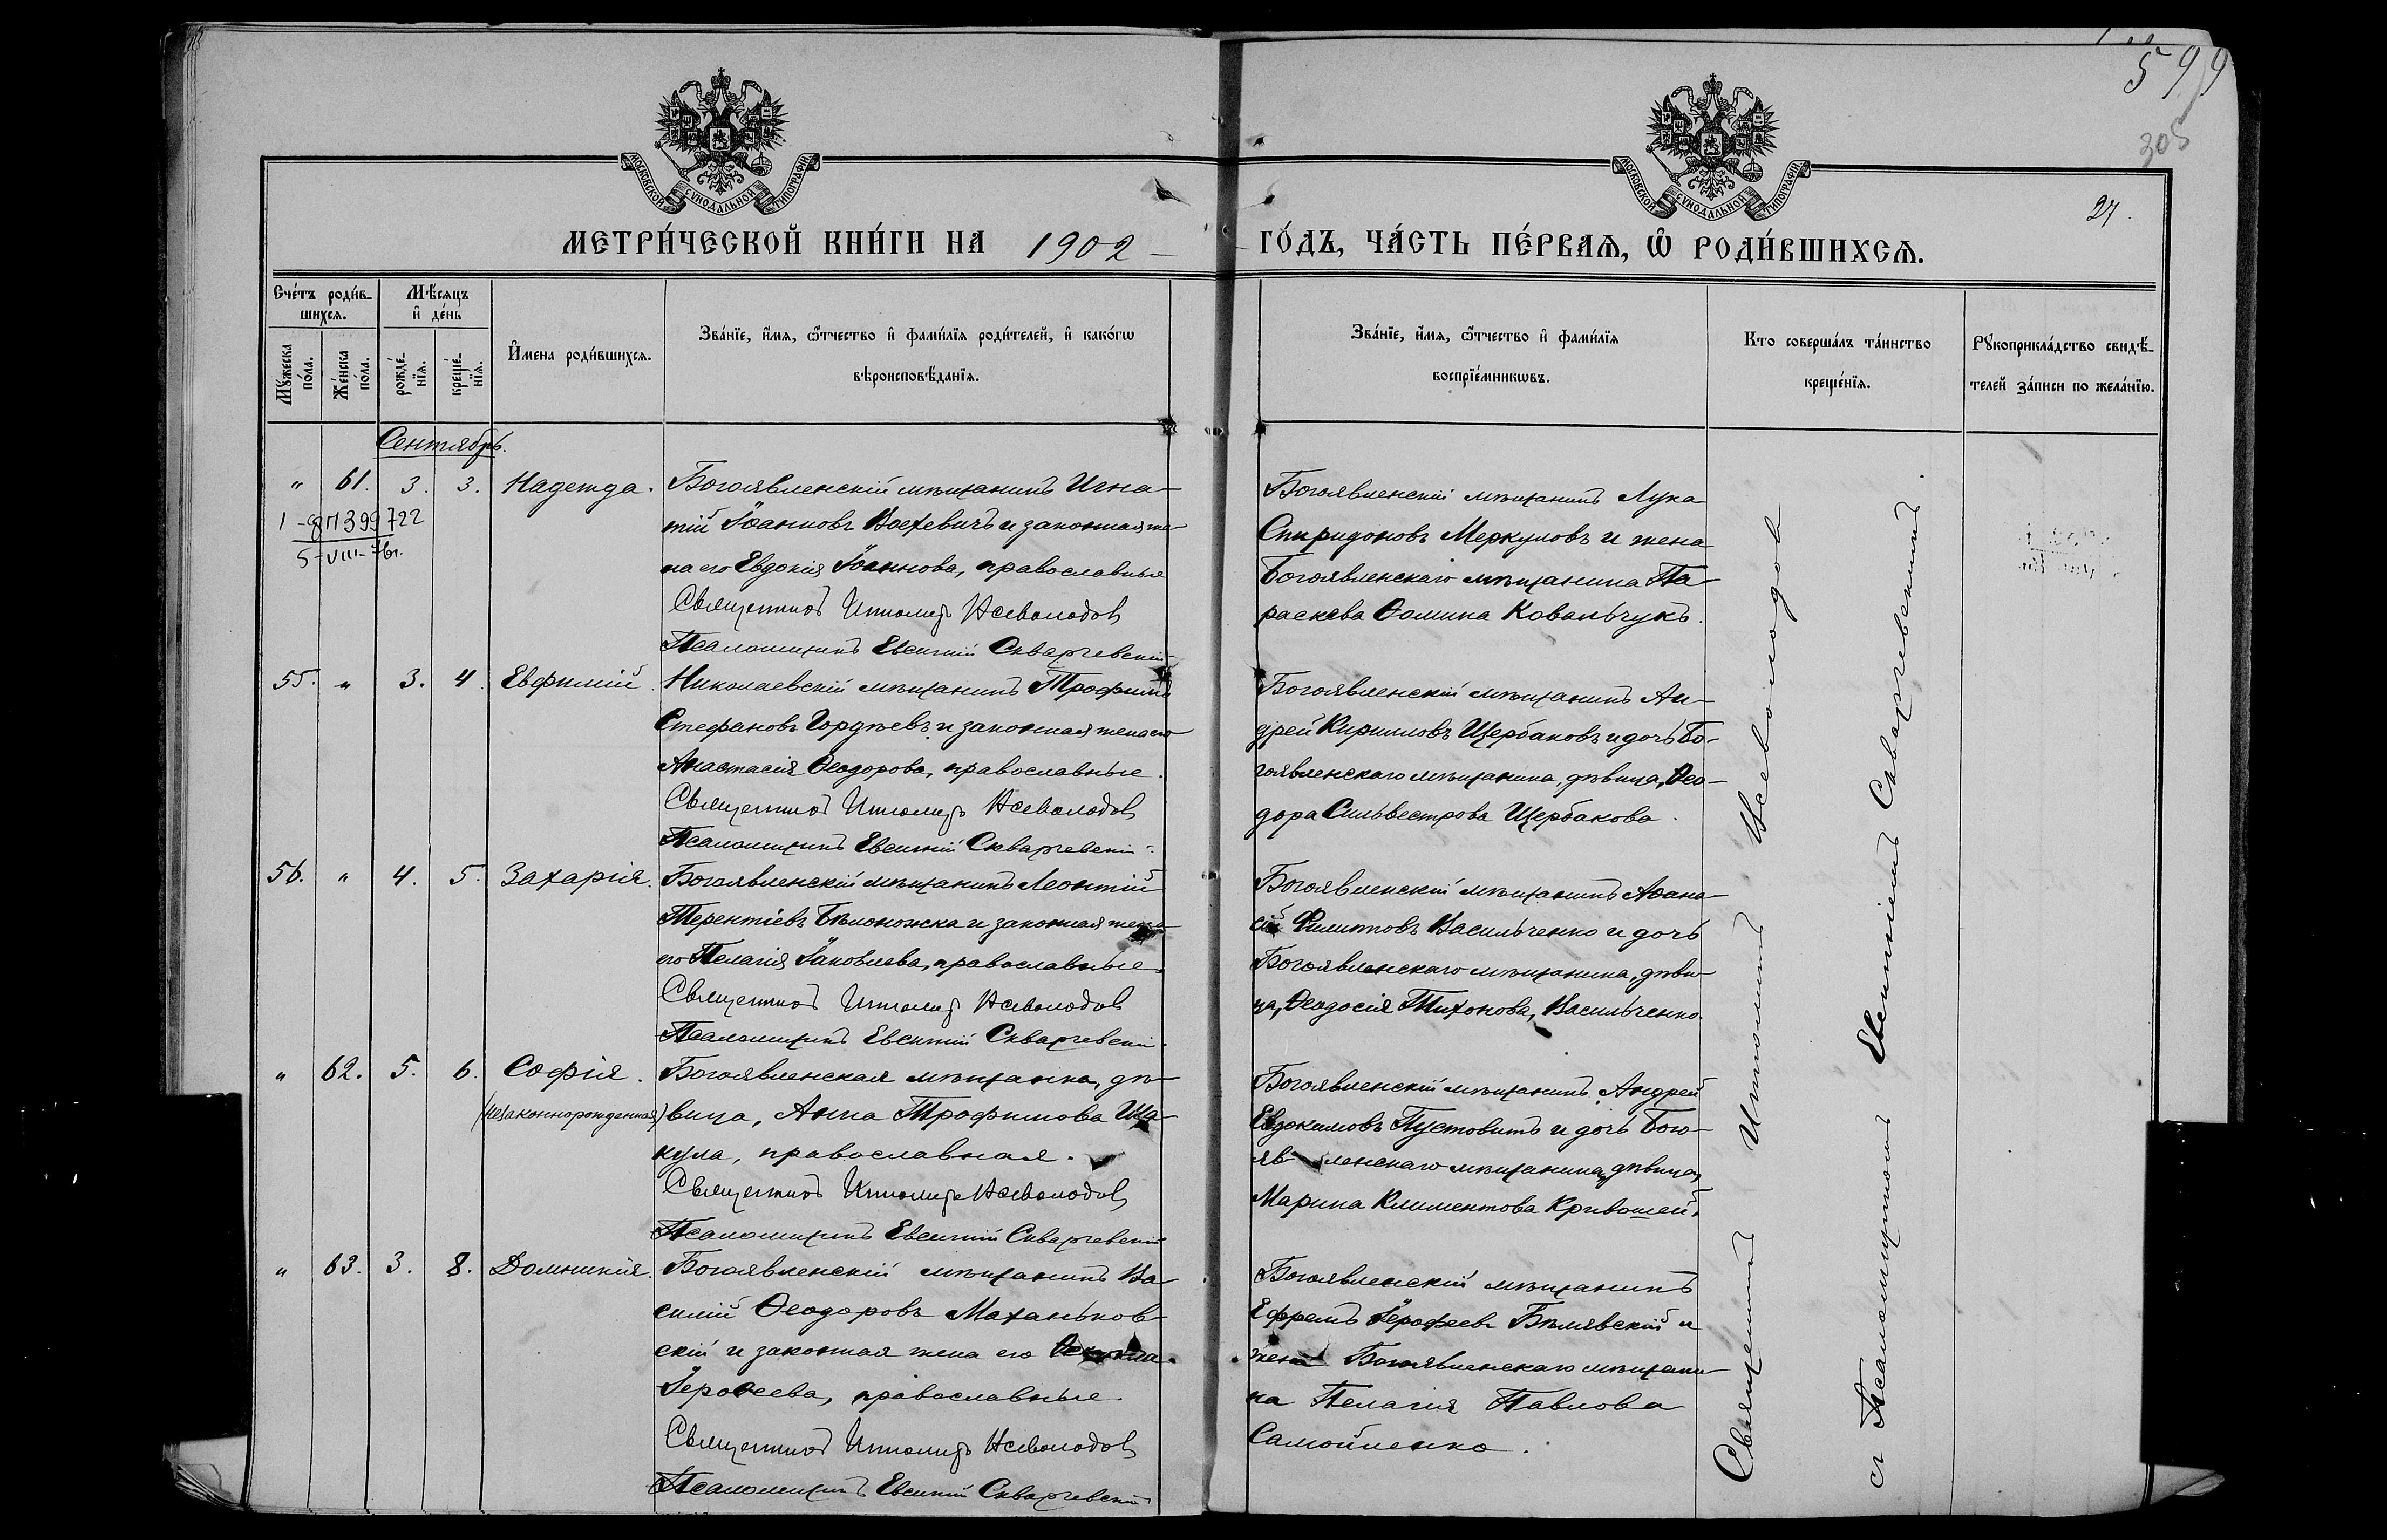 599
305
27.
МОСКОВСКОЙ СѴНОДАЛЬНОЙ ТИПОГРАФІИ
МОСКОВСКОЙ СѴНОДАЛЬНОЙ ТИПОГРАФІИ
МЕТРИ́ЧЕСКОЙ КНИ́ГИ НА 1902
ГО́ДЪ, ЧА́СТЬ ПЕ́РВАѦ, Ѡ҆ РОДИ́ВШИХСѦ.
Сче́тъ роди́в-
шихсѧ.
Мꙋ́жеска по́ла.
Же́нска по́ла.
Мѣ́сѧцъ
и҆ де́нь
рожде́-
нїѧ.
креще́-
нїѧ.
И҆мена роди́вшихсѧ.
Зва́нїе, и҆́мѧ, ѻ҆́тчество и҆ фами́лїѧ роди́телей, и҆ како́гѡ
вѣроисповѣ́данїѧ.
Зва́нїе, и҆́мѧ, ѻ҆́тчество и҆ фами́лїѧ
воспрїе́мникѡвъ.
Кто соверша́лъ та́инство
креще́нїѧ.
Рꙋкоприкла́дство свидѣ́-
телей за́писи по жела́нїю.
Сентябрь.
" 61. 3. 3. Надежда.
Богоявленскій мѣщанинъ Игна-
тій Іоанновъ и законная же-
на его Евдокія Іоаннова, православные
Священникъ Ипполитъ Всеволодов
Псаломщикъ Евсигній Скваржевскій
Богоявленскій мѣщанинъ Лука
Спиридоновъ Меркуловъ и жена
Богоявленскаго мѣщанина Па-
раскева Ѳомина Ковальчукъ.
399722
55. " 3. 4. Евфимій.
Николаевскій мѣщанинъ Трофимъ
Стефановъ Гордѣевъ и законная жена его
Анастасія Ѳеодорова, православные.
Священникъ Ипполитъ Всеволодов
Псаломщикъ Евсигній Скваржевскій
Богоявленскій мѣщанинъ Ан-
дрей Кирилловъ Щербаковъ и дочь Бо-
гоявленскаго мѣщанина, дѣвица, Ѳео-
дора Сильвестрова Щербакова.
56. " 4. 5. Захарія.
Богоявленскій мѣщанинъ Леонтій
Терентіевъ Бѣлоножка и законная жена
его Пелагія Іаковлева, православные.
Священникъ Ипполитъ Всеволодов
Псаломщикъ Евсигній Скваржевскій
Богоявленскій мѣщанинъ Аѳана-
сій Филипповъ Васильченко и дочь
Богоявленскаго мѣщанина, дѣви-
ца, Ѳеодосія Тихонова, Васильченко.
" 62. 5. 6. Софія.
(незаконнорожденная)
Богоявленская мѣщанка, дѣ-
вица, Анна Трофимова Ша-
кула, православная.
Священникъ Ипполитъ Всеволодов
Псаломщикъ Евсигній Скваржевскій
Богоявленскій мѣщанинъ Андрей
Евдокимовъ Пустовитъ и дочь Бого-
явленскаго мѣщанина, дѣвица,
Марина Климентова Кривошей.
" 63. 3. 8. Домникія.
Богоявленскій мѣщанинъ Ва-
силій Ѳеодоровъ Маханьков-
скій и законная жена его
Іероѳеева, православные.
Священникъ Ипполитъ Всеволодов
Псаломщикъ Евсигній Скваржевскій
Богоявленскій мѣщанинъ
Ефремъ Іерофеевъ Бѣлявскій и
жена Богоявленскаго мѣщани-
на Пелагія Павлова
Самойленко.
Священникъ Ипполитъ Всеволодов
съ Псаломщикомъ Евсигніемъ Скваржевскимъ.